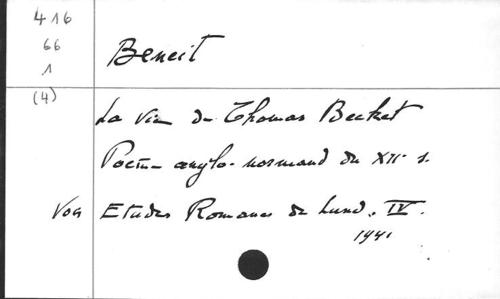 416
66
1
(4)
Beneit
La vie de Thomas Becket
Poème anglo-normand du XIIe s.
Voir Etudes Romanes de Lund. IV.
1941